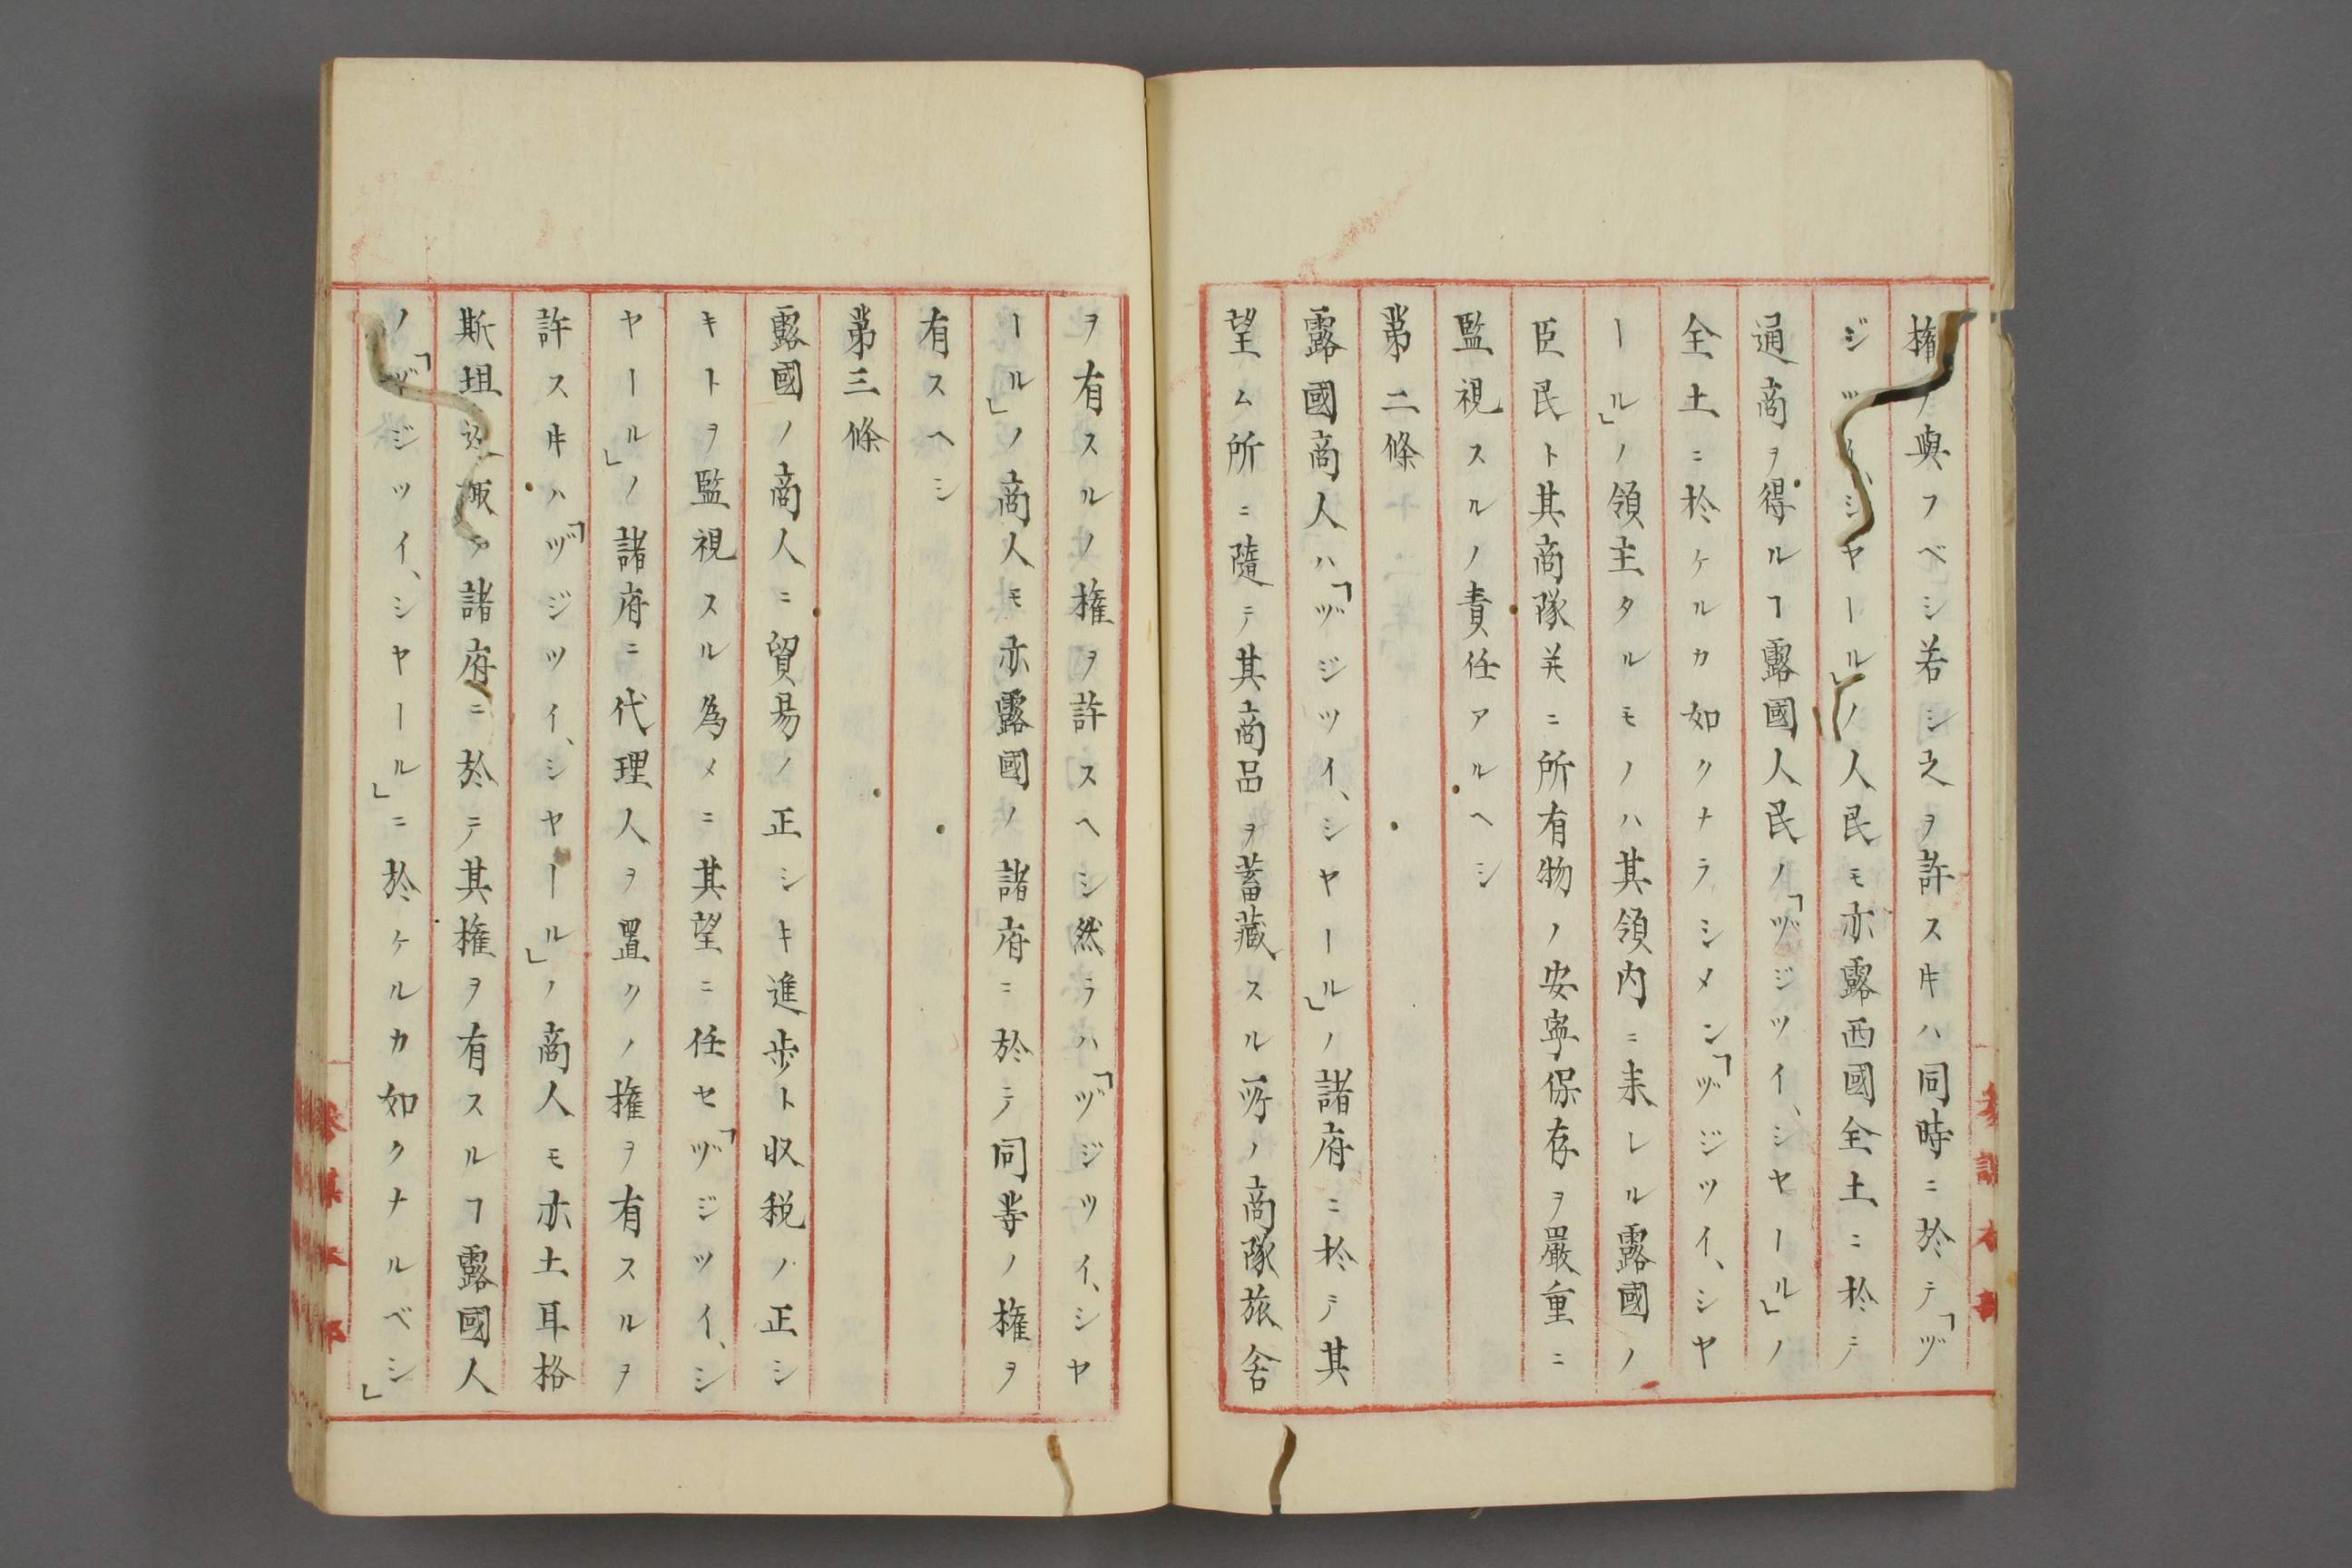 権ヲ與フベシ若シ之ヲ許スキハ同時ニ於テ「ヅ
ジツイ、シヤール」ノ人民モ亦露西國全土ニ於テ
通商ヲ得ルヿ露國人民ノ「ヅジツイ、シヤール」ノ
全土ニ於ケルカ如クナラシメン「ヅジツイ、シヤ
ール」ノ領主タルモノハ其領内ニ来レル露國ノ
臣民ト其商隊並ニ所有物ノ安寧保存ヲ嚴重ニ
監視スルノ責任アルヘシ
第二條
露國商人ハ「ヅジツイ、シヤール」ノ諸府ニ於テ其
望ム所ニ隨テ其商品ヲ蓄藏スル所ノ商隊旅舎
ヲ有スルノ権ヲ許スヘシ然ラハ「ヅジツイ、シヤ
ール」ノ商人モ亦露國ノ諸府ニ於テ同等ノ権ヲ
有スヘシ
第三條
露國ノ商人ニ貿易ノ正シキ進歩ト收税ノ正シ
キトヲ監視スル為メニ其望ニ任セ「ヅジツイ、シ
ヤール」ノ諸府ニ代理人ヲ置クノ権ヲ有スルヲ
許スキハ「ヅジツイ、シヤール」ノ商人モ亦土耳格
斯坦 諸府ニ於テ其権ヲ有スルヿ露國人
ノ「ヅジツイ、シヤール」ニ於ケルカ如クナルベシ」
參謀本部